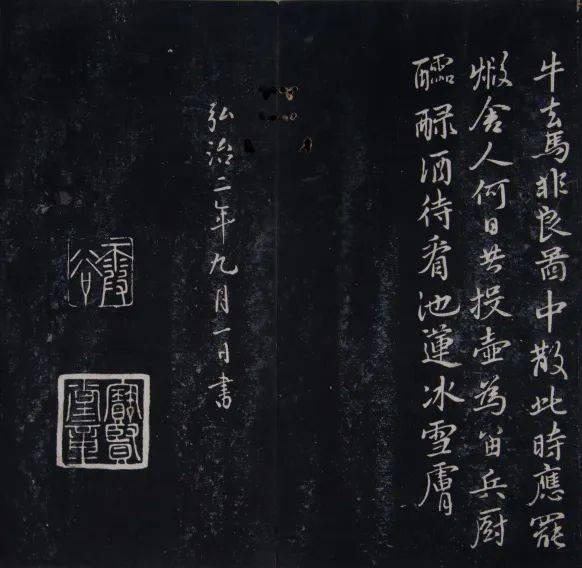 牛去馬非良啚中散此時應罷
煅舍人何日共投壺為留兵厨
醽醁酒待看池蓮冰雪膚
弘治二年九月一日書
寶賢堂章